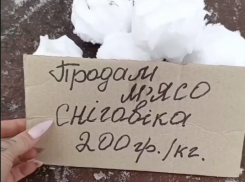 Продам
м'ясо
сніговіка
200гр./кг.